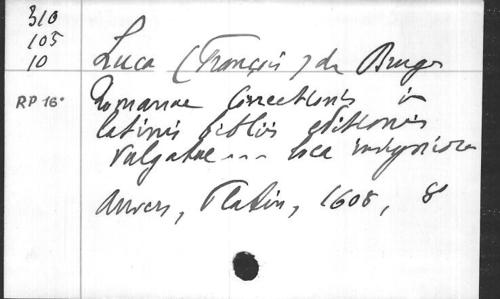 310
105
10
Luca (François) de Bruges
RP 16°
Romanae Correctionis in
latinis bibliis editionis
vulgatae --- loca insigniora
Anvers, Plantin, 1608, 8°